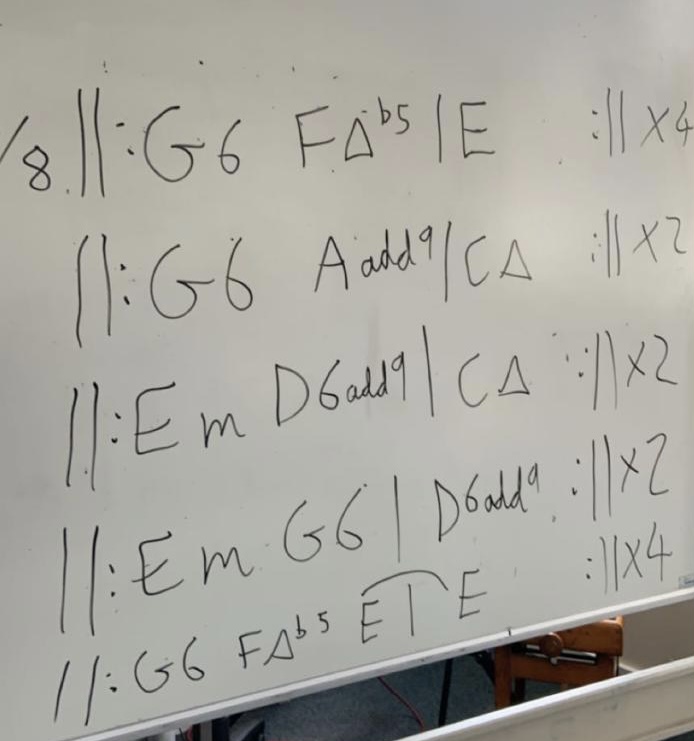 /8 ||: G6 FΔb5 | E :|| x4
||: G6 Aadd9 | CΔ :|| x2
||: Em D6add9 | CΔ :|| x2
||: Em G6 | D6add9 :|| x2
||: G6 FΔb5 E | E :|| x4